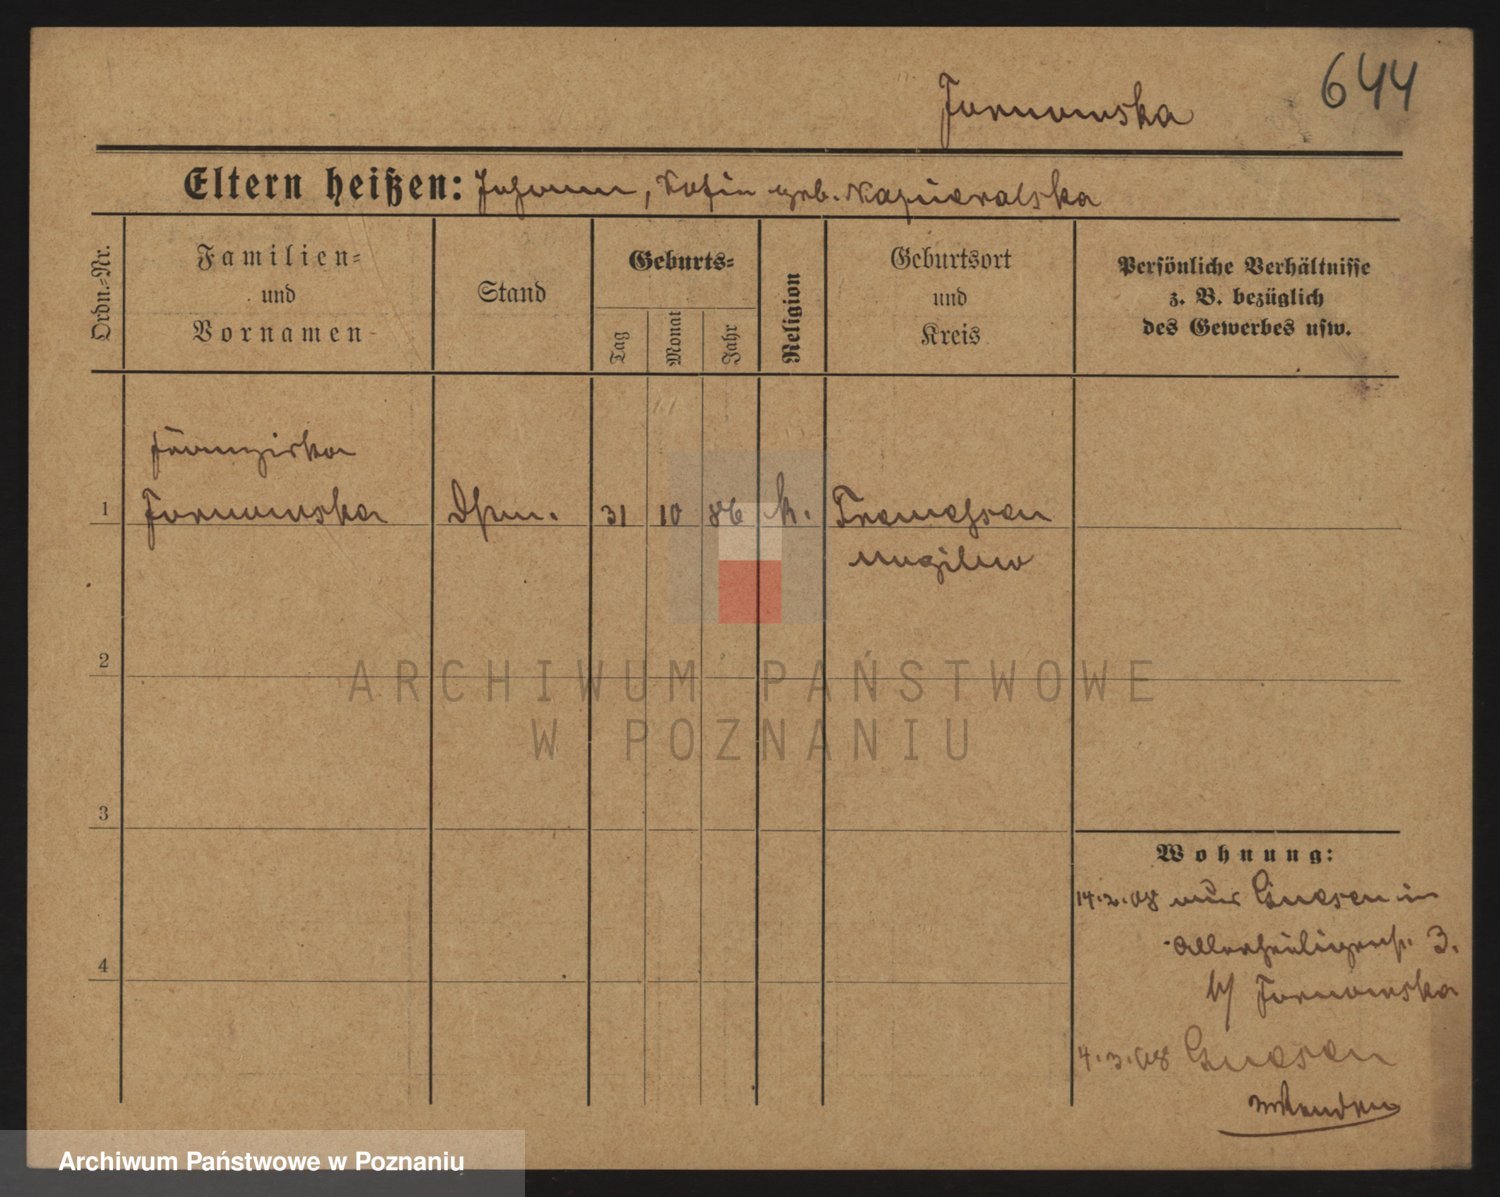 644
Jarnowska
Eltern heißen: Johann, Sofia geb. Kapueralska
Ordn.-Nr.
Familien-
und
Vornamen
Stand
Geburts-
Tag
Monat
Jahr
Religion
Geburtsort
und
Kreis
Persönliche Verhältnisse
z. B. bezüglich
des Gewerbes usw.
Franziska
1 Jarnowska 31 10 86 k. Tremessen
Mogilno
2
3
4
Wohnung:
14.2.08 Gnesen
Allerheiligenstr. 3.
b/ Jarnowska
4.3.08 Gnesen
ARCHIWUM PAŃSTWOWE
W POZNANIU
Archiwum Państwowe w Poznaniu